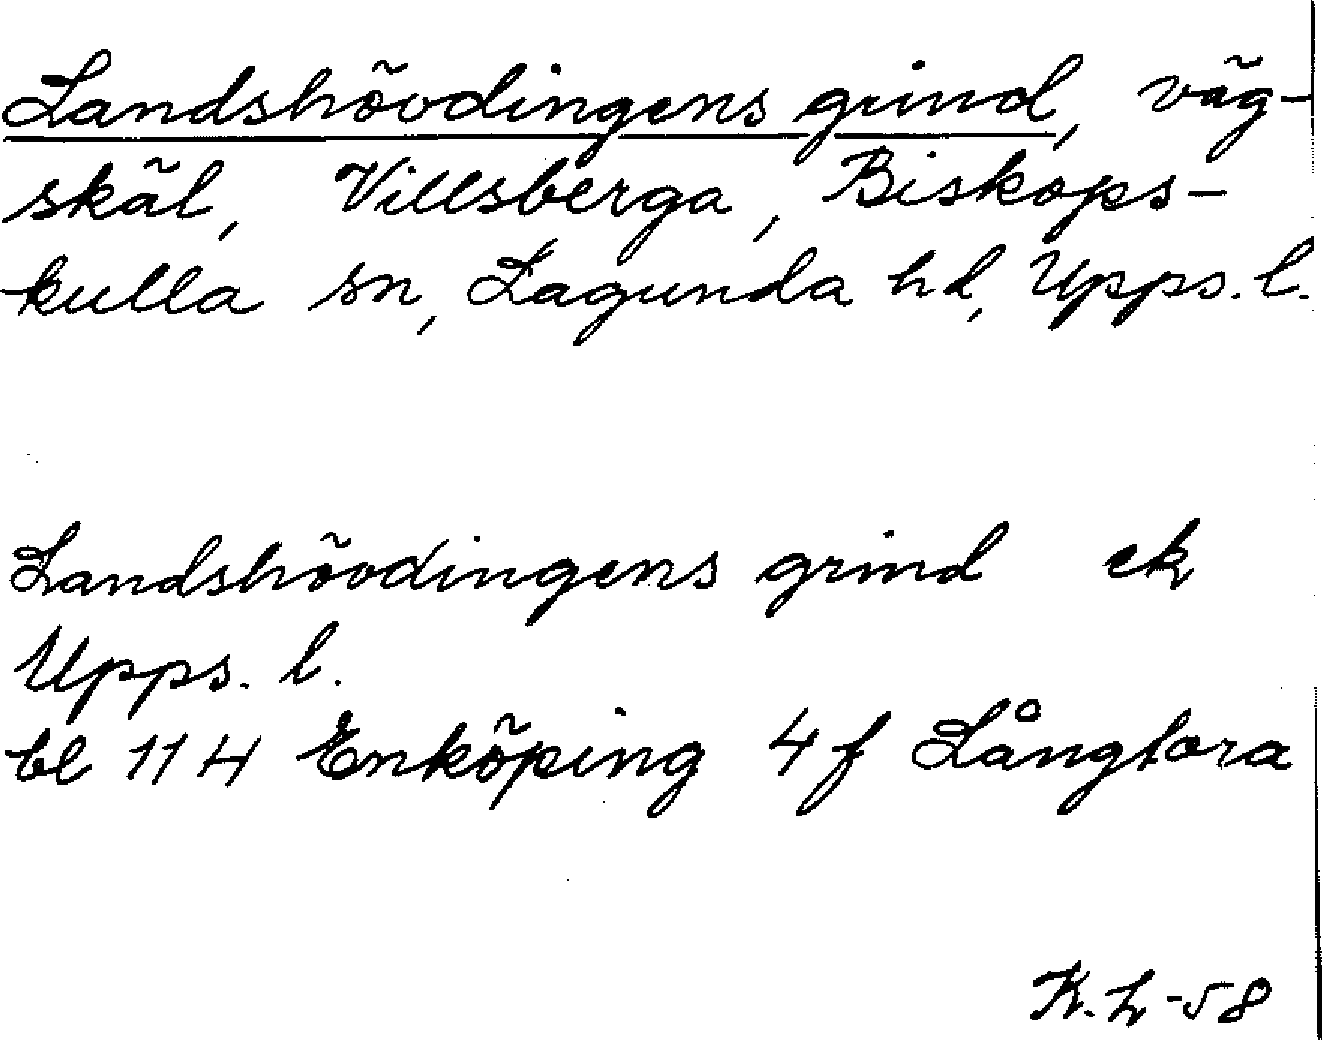 Landshövdingens grind, väg-
skäl, Villsberga, Biskops-
kulla sn, Lagunda hd, Upps. l.
Landshövdingens grind ek
Upps. l.
bl 114 Enköping 4f Långtora
K. L -58